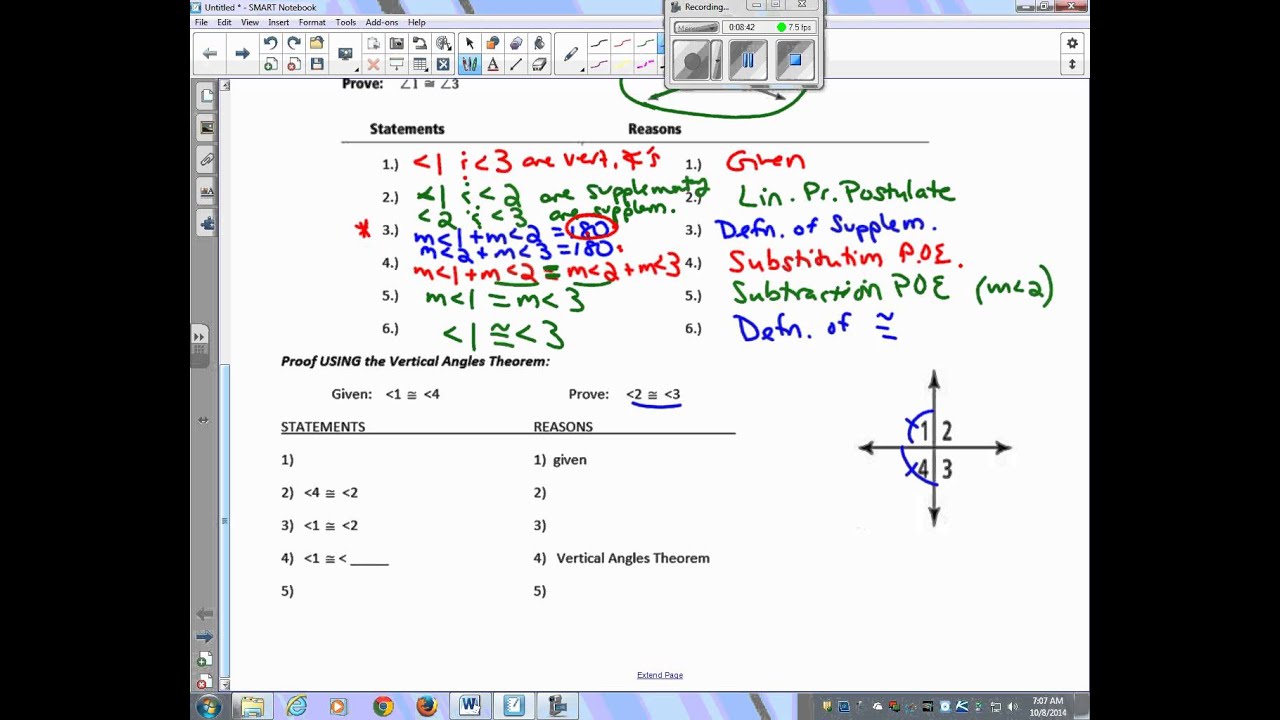 Untitled * - SMART Notebook
Recording...
File Edit View Insert Format Tools Add-ons Help
0:08:42 7.5 fps
Prove: ∠1 ≅ ∠3
Statements Reasons
1.) <1 & <3 are vert. ∡'s 1.) Given
2.) <1 & <2 are supplementy 2.) Lin. Pr. Postulate
<2 & <3 are supplem.
* 3.) m<1 + m<2 = 180 3.) Defn. of Supplem.
m<2 + m<3 = 180
4.) m<1 + m<2 = m<2 + m<3 4.) Substitution P.O.E.
5.) m<1 = m<3 5.) Subtraction POE (m<2)
6.) <1 ≅ <3 6.) Defn. of ≅
Proof USING the Vertical Angles Theorem:
Given: <1 ≅ <4 Prove: <2 ≅ <3
STATEMENTS REASONS
1) 1) given
2) <4 ≅ <2 2)
3) <1 ≅ <2 3)
4) <1 ≅ < _____ 4) Vertical Angles Theorem
5) 5)
1 2
4 3
Extend Page
7:07 AM
10/8/2014